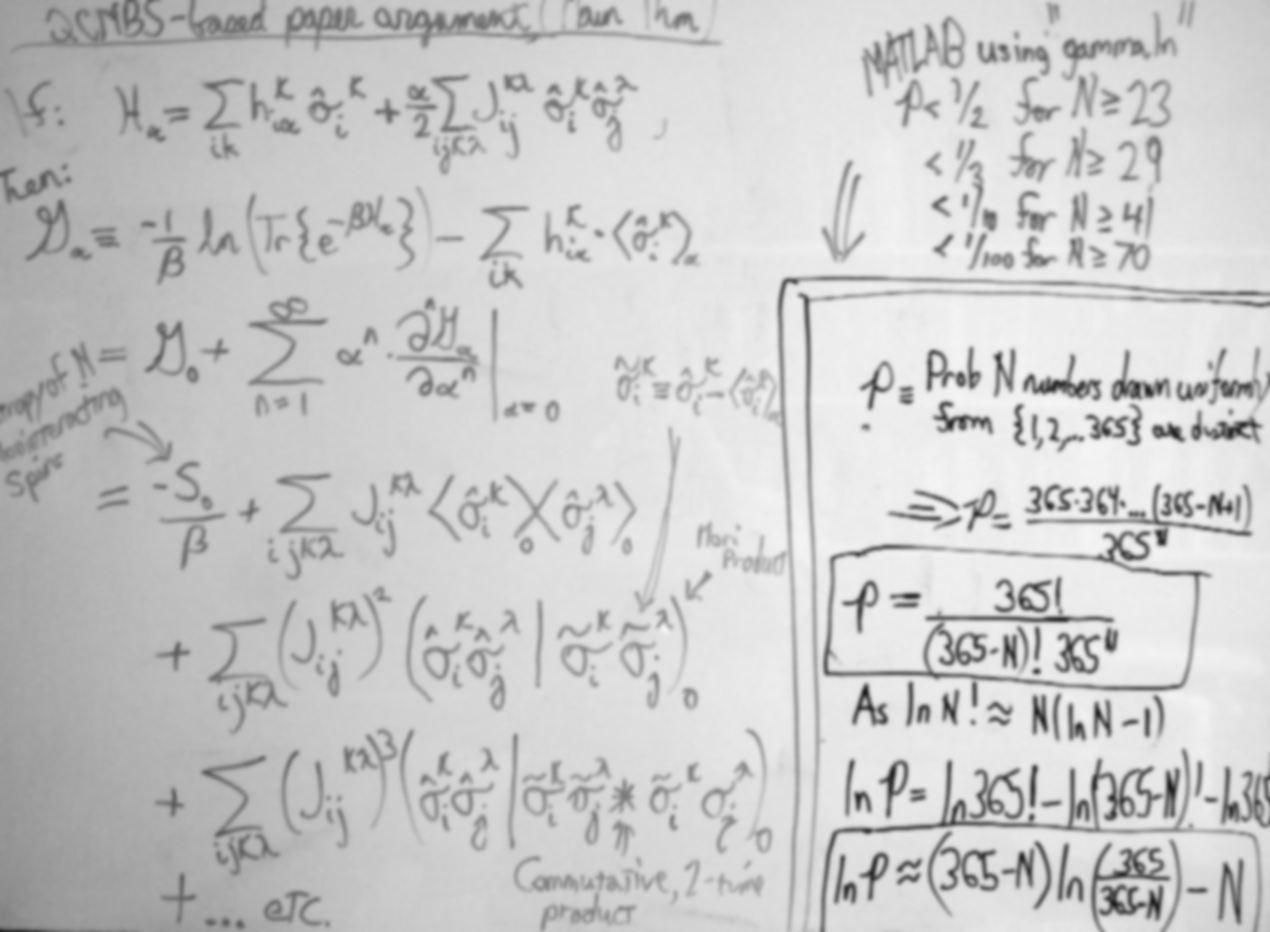 QCMBS-based paper argument, (Main Thm)
If: ℋ_α = ∑_{ik} h_{iα}^κ σ̂_i^κ + α/2 ∑_{ijκλ} J_{ij}^{κλ} σ̂_i^κ σ̂_j^λ ,
Then:
𝒢_α ≡ -1/β ln(Tr{e^{-βℋ_α}}) - ∑_{ik} h_{iα}^κ · ⟨σ̂_i^κ⟩_α
= 𝒢_0 + ∑_{n=1}^{∞} α^n · ∂^n𝒢_α/∂α^n |_{α=0}
σ̃_i^κ ≡ σ̂_i^κ - ⟨σ̂_i^κ⟩_α
of N
Spins
= -S_0/β + ∑_{ijκλ} J_{ij}^{κλ} ⟨σ̂_i^κ⟩_0⟨σ̂_j^λ⟩_0
Mori
Product
+ ∑_{ijκλ} (J_{ij}^{κλ})^2 (σ̂_i^κ σ̂_j^λ | σ̃_i^κ σ̃_j^λ)_0
+ ∑_{ijκλ} (J_{ij}^{κλ})^3 (σ̂_i^κ σ̂_j^λ | σ̃_i^κ σ̃_j^λ * σ̃_i^κ σ_j^λ)_0
↑
Commutative, 2-time
product
+ ... etc.
MATLAB using "gammaln"
P < 1/2 for N ≥ 23
< 1/3 for N ≥ 29
< 1/10 for N ≥ 41
< 1/100 for N ≥ 70
P ≡ Prob N numbers drawn uniformly
from {1,2,...365} are distinct
⇒ P = 365·364·...(365-N+1)/365^N
P = 365!/((365-N)! 365^N)
As ln N! ≈ N(ln N - 1)
ln P = ln 365! - ln(365-N)! - ln 365
ln P ≈ (365-N) ln(365/(365-N)) - N